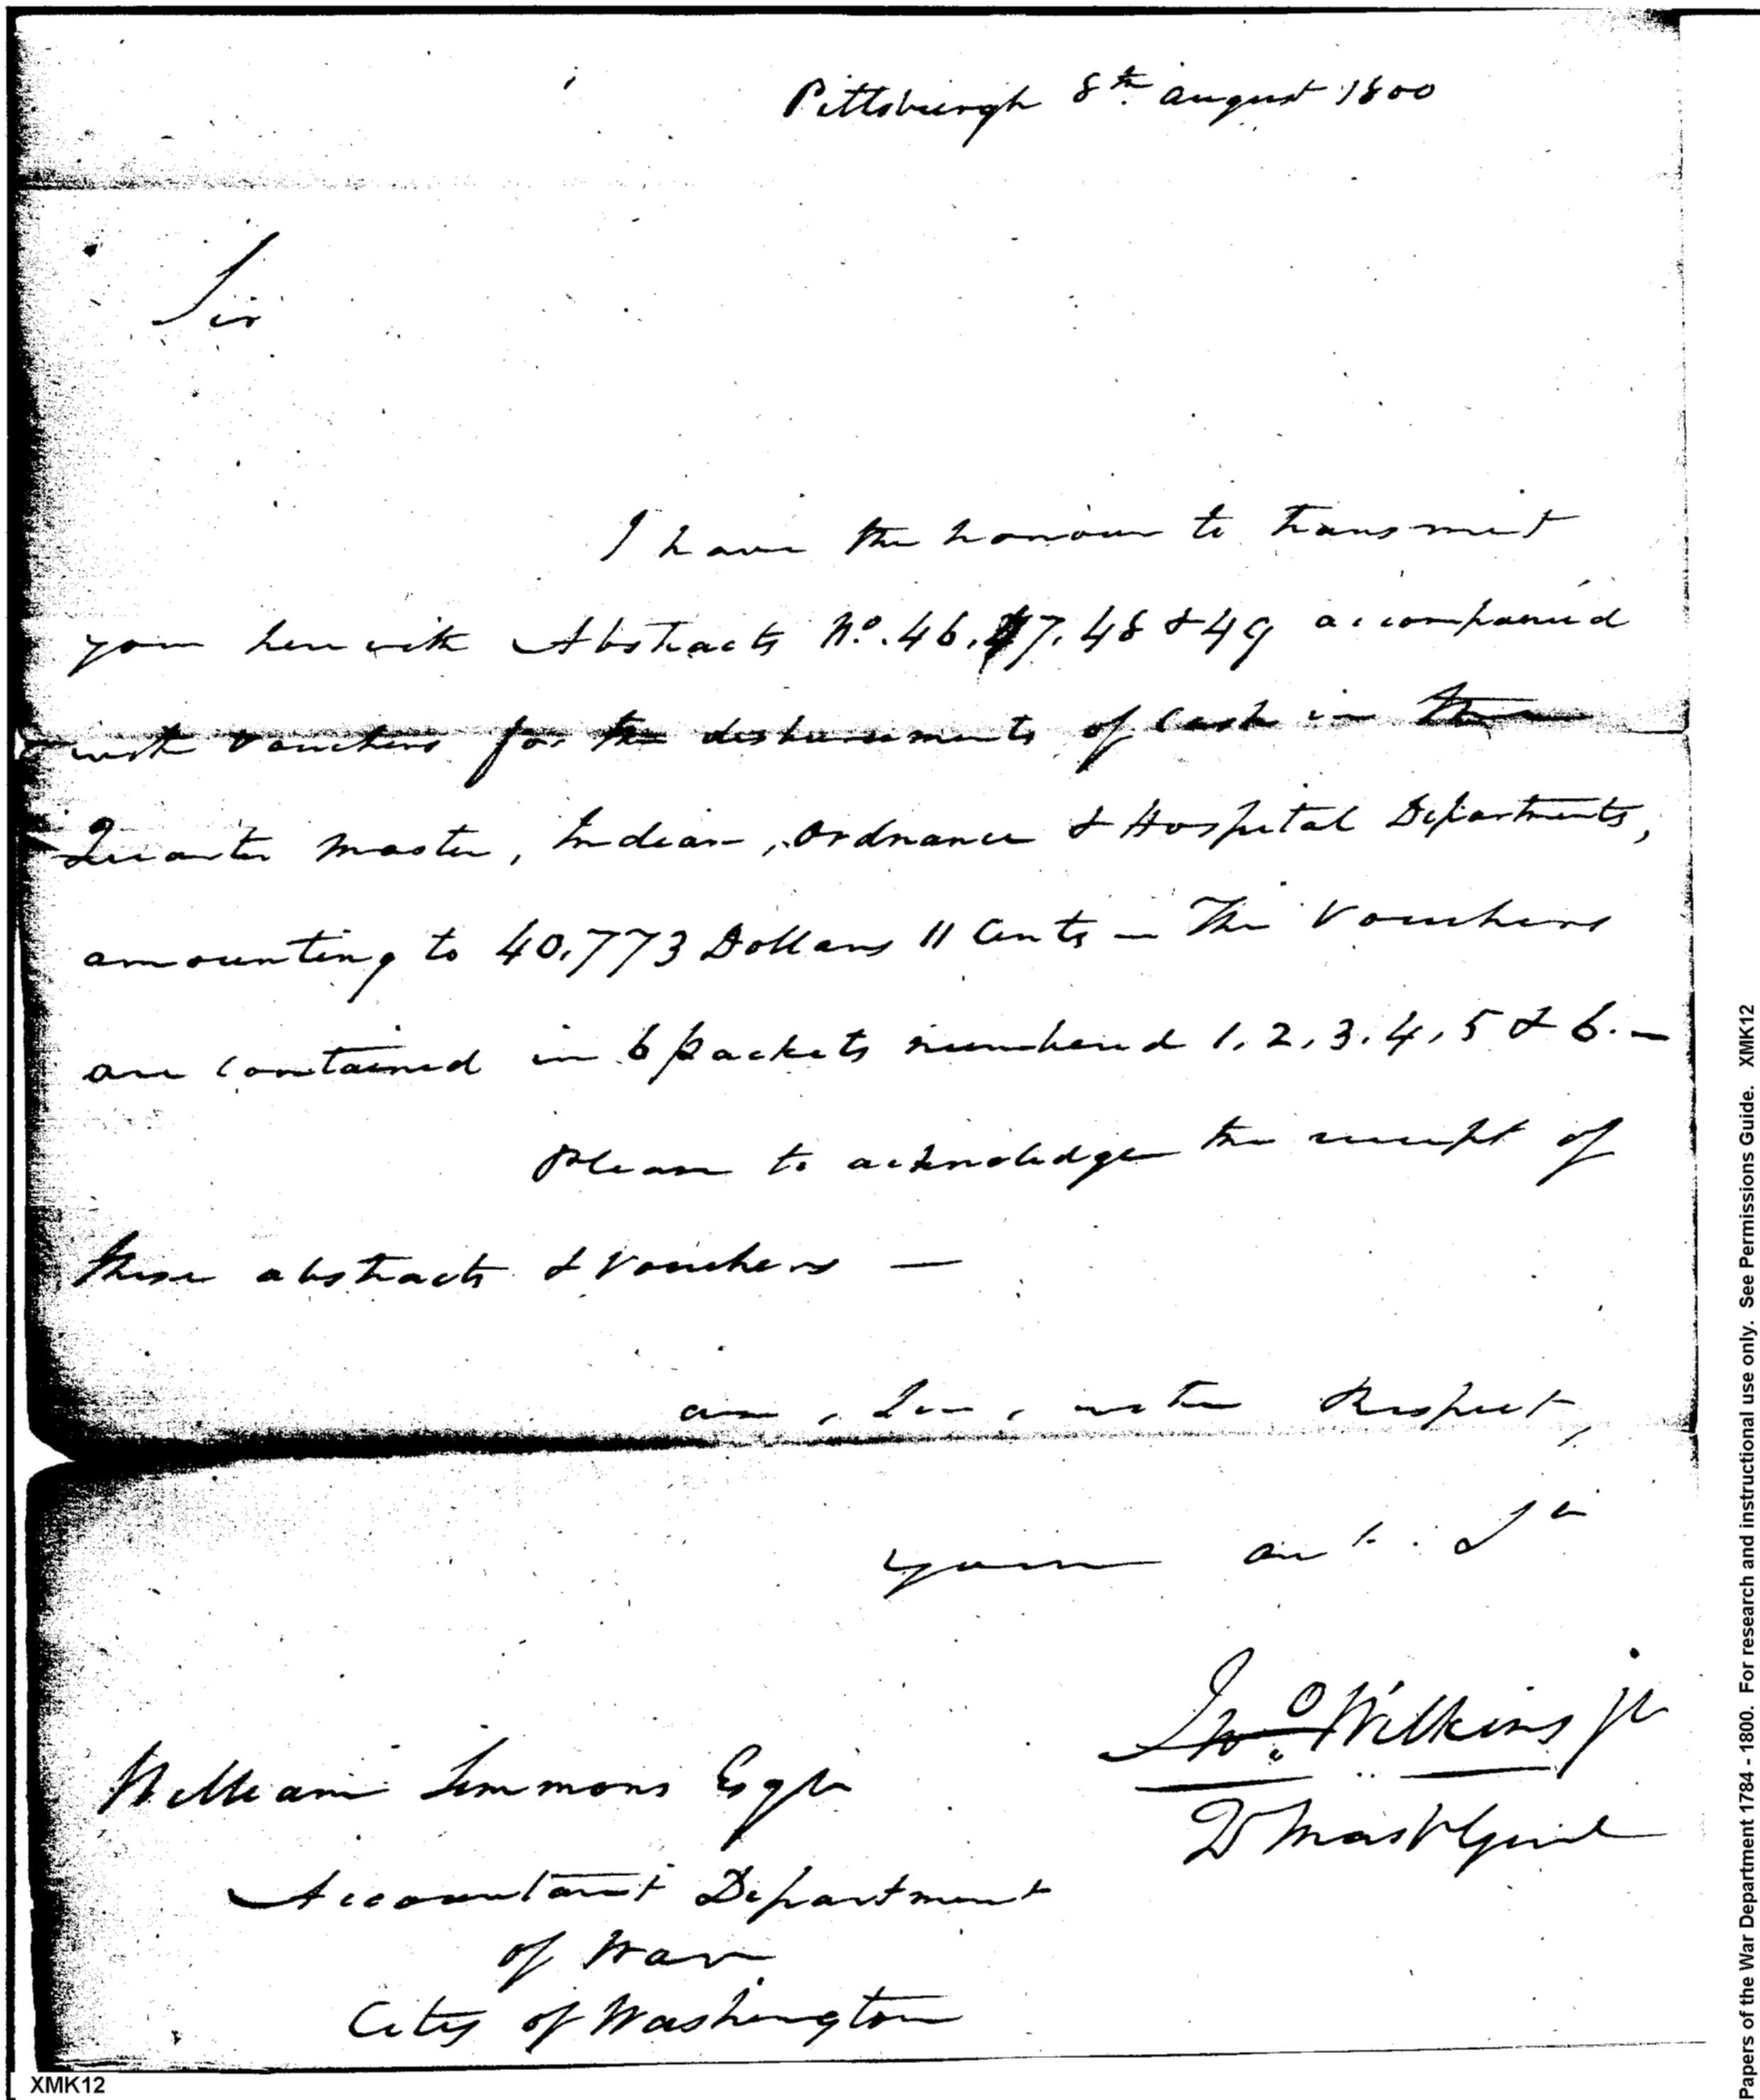 Pittsburgh 8th. august 1800
Sir
I have the honour to transmit
you herewith Abstracts No. 46. 47. 48 & 49 accompanied
with vouchers for the disbursements of Cash in the
Quarter Master, Indian, Ordnance & Hospital Departments,
amounting to 40,773 Dollars 11 Cents - The Vouchers
are contained in 6 packets numbered 1, 2, 3, 4, 5 & 6. -
Please to acknoledge the receipt of
these abstracts & Vouchers -
am, Sir, with Respect,
your
Jno. Wilkins jr
William Simmons Esqr
Accountant Department
of War
City of Washington
XMK12
Papers of the War Department 1784 - 1800. For research and instructional use only. See Permissions Guide. XMK12